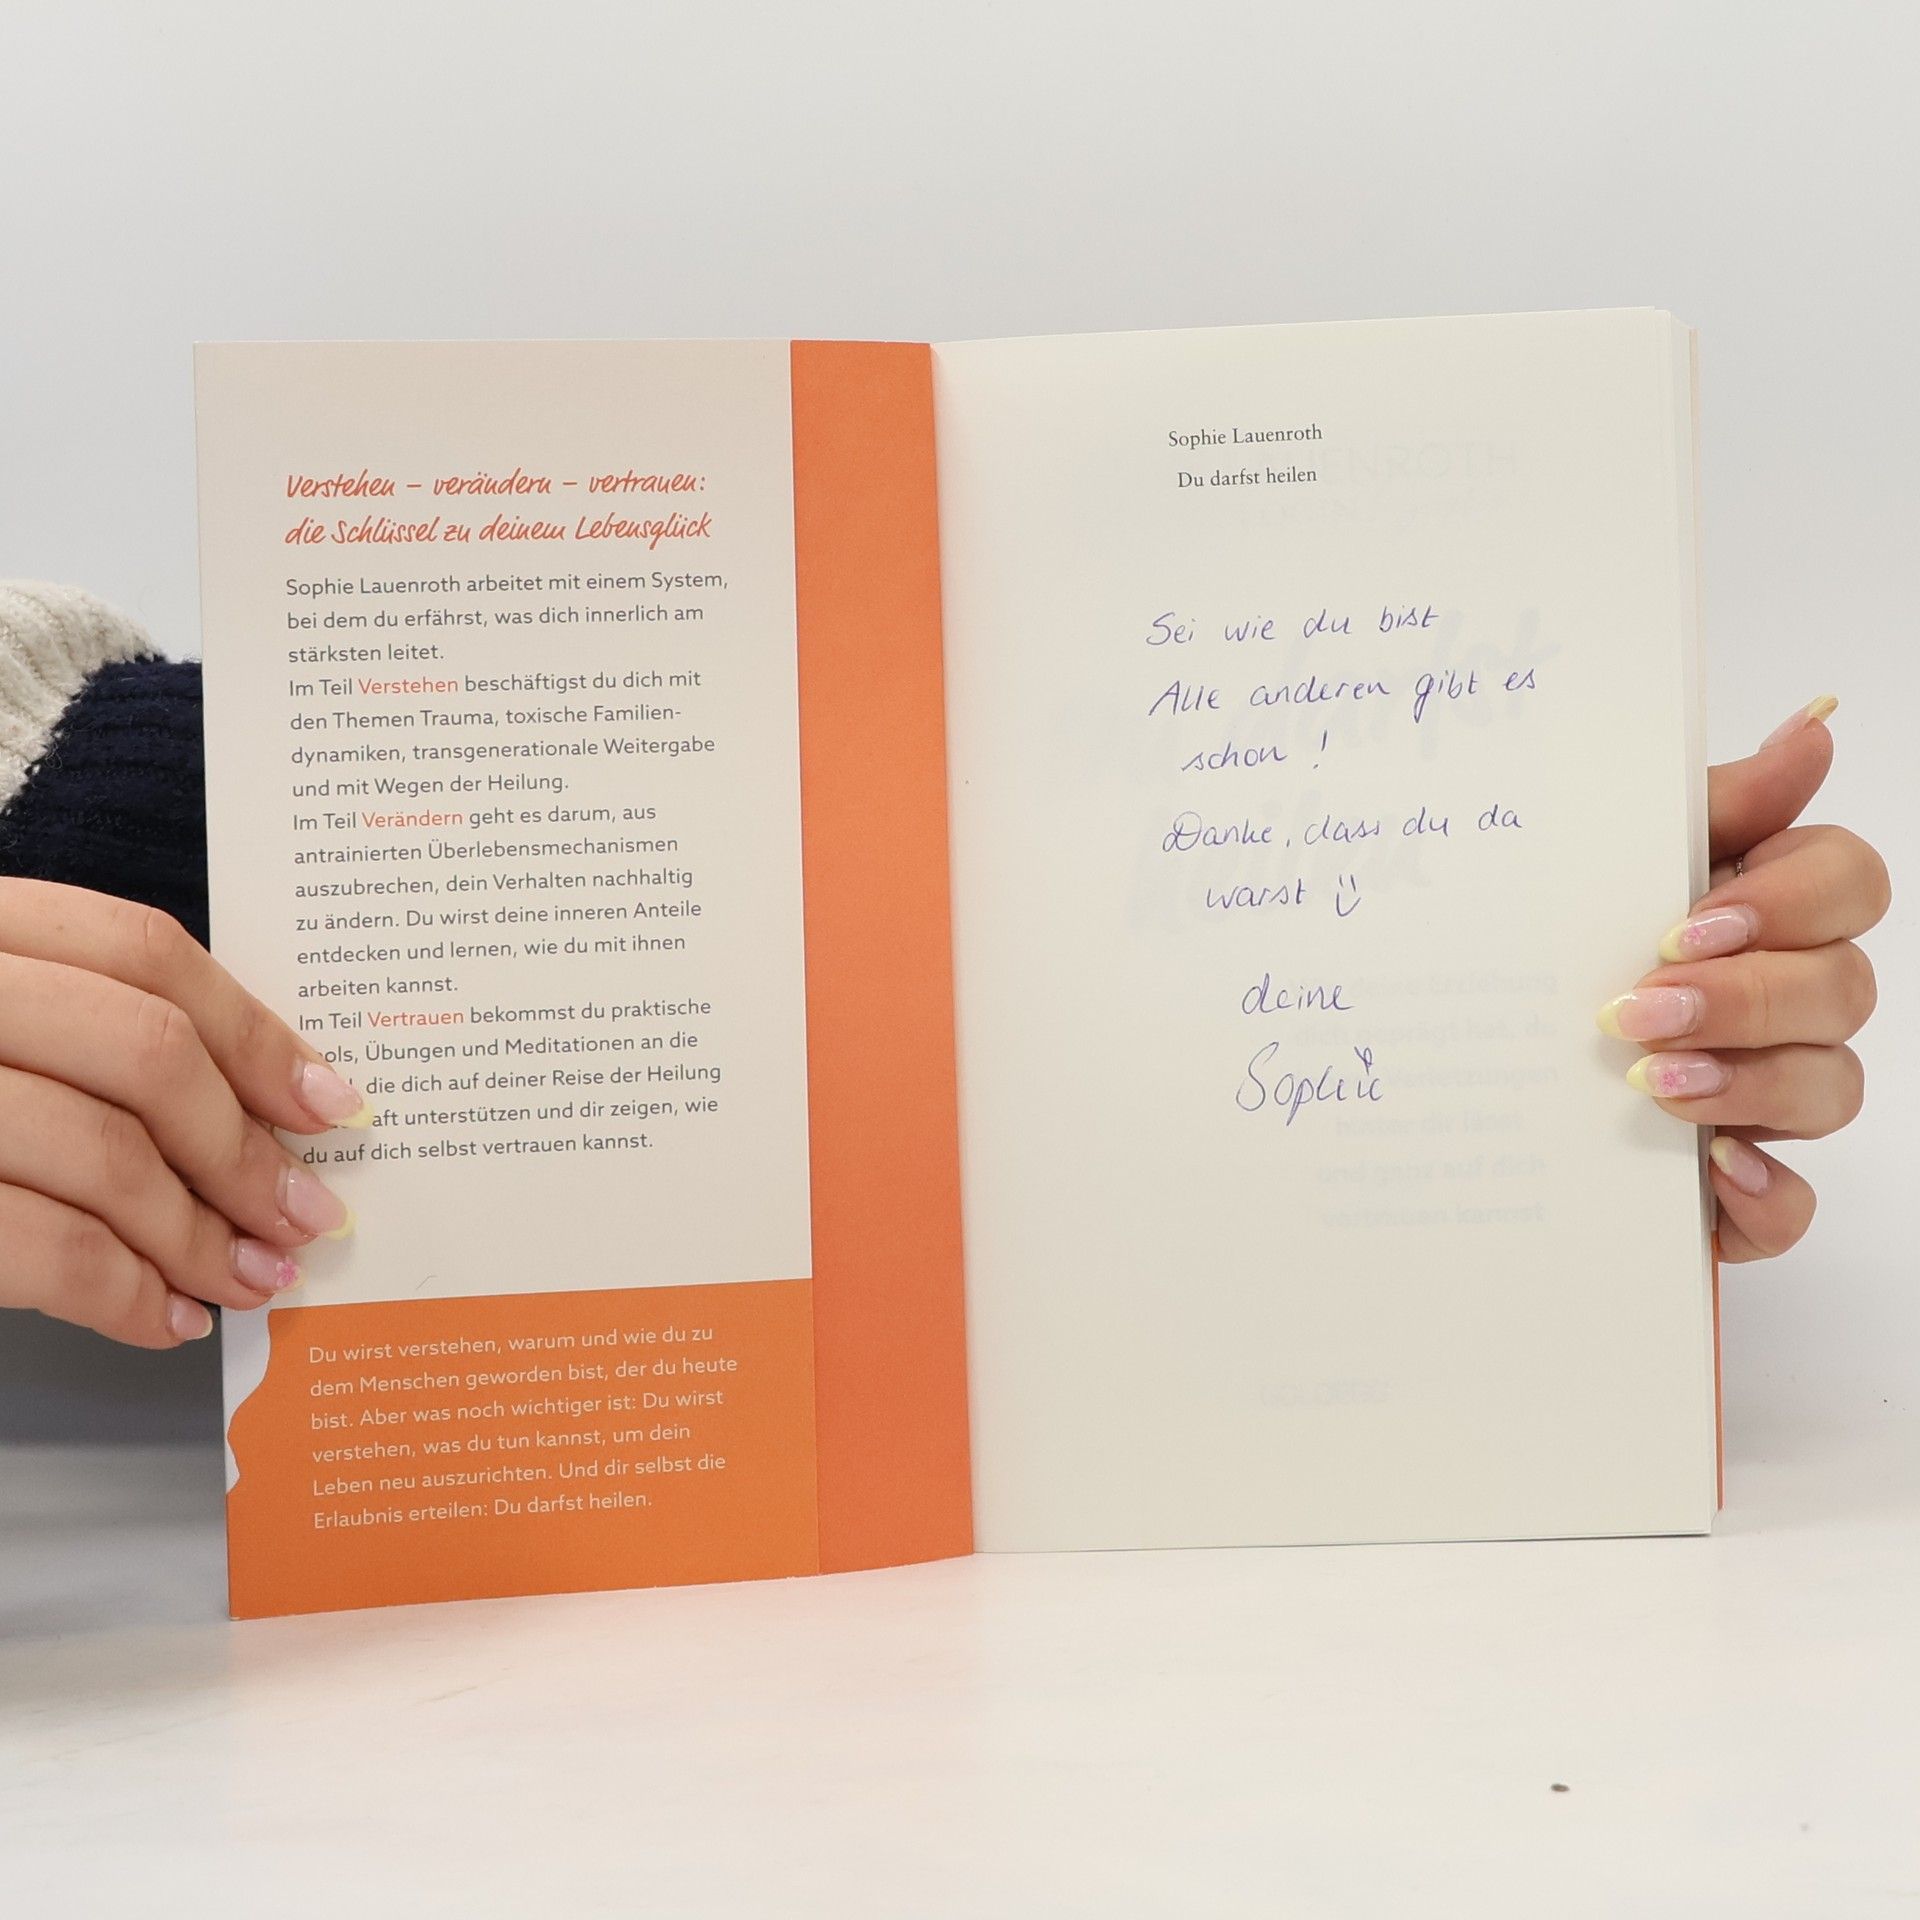 Verstehen – verändern – vertrauen:
die Schlüssel zu deinem Lebensglück
Sophie Lauenroth arbeitet mit einem System,
bei dem du erfährst, was dich innerlich am
stärksten leitet.
Im Teil Verstehen beschäftigst du dich mit
den Themen Trauma, toxische Familien-
dynamiken, transgenerationale Weitergabe
und mit Wegen der Heilung.
Im Teil Verändern geht es darum, aus
antrainierten Überlebensmechanismen
auszubrechen, dein Verhalten nachhaltig
zu ändern. Du wirst deine inneren Anteile
entdecken und lernen, wie du mit ihnen
arbeiten kannst.
Im Teil Vertrauen bekommst du praktische
ols, Übungen und Meditationen an die
die dich auf deiner Reise der Heilung
aft unterstützen und dir zeigen, wie
du auf dich selbst vertrauen kannst.
Du wirst verstehen, warum und wie du zu
dem Menschen geworden bist, der du heute
bist. Aber was noch wichtiger ist: Du wirst
verstehen, was du tun kannst, um dein
Leben neu auszurichten. Und dir selbst die
Erlaubnis erteilen: Du darfst heilen.
Sophie Lauenroth
Du darfst heilen
Sei wie du bist
Alle anderen gibt es
schon !
Danke, dass du da
warst
deine
Sophie